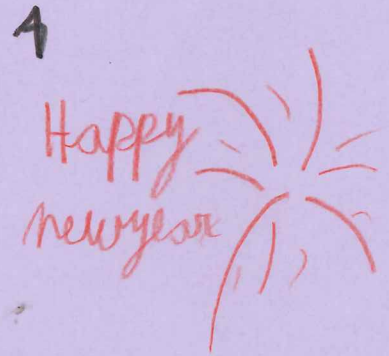 1
Happy
newyear